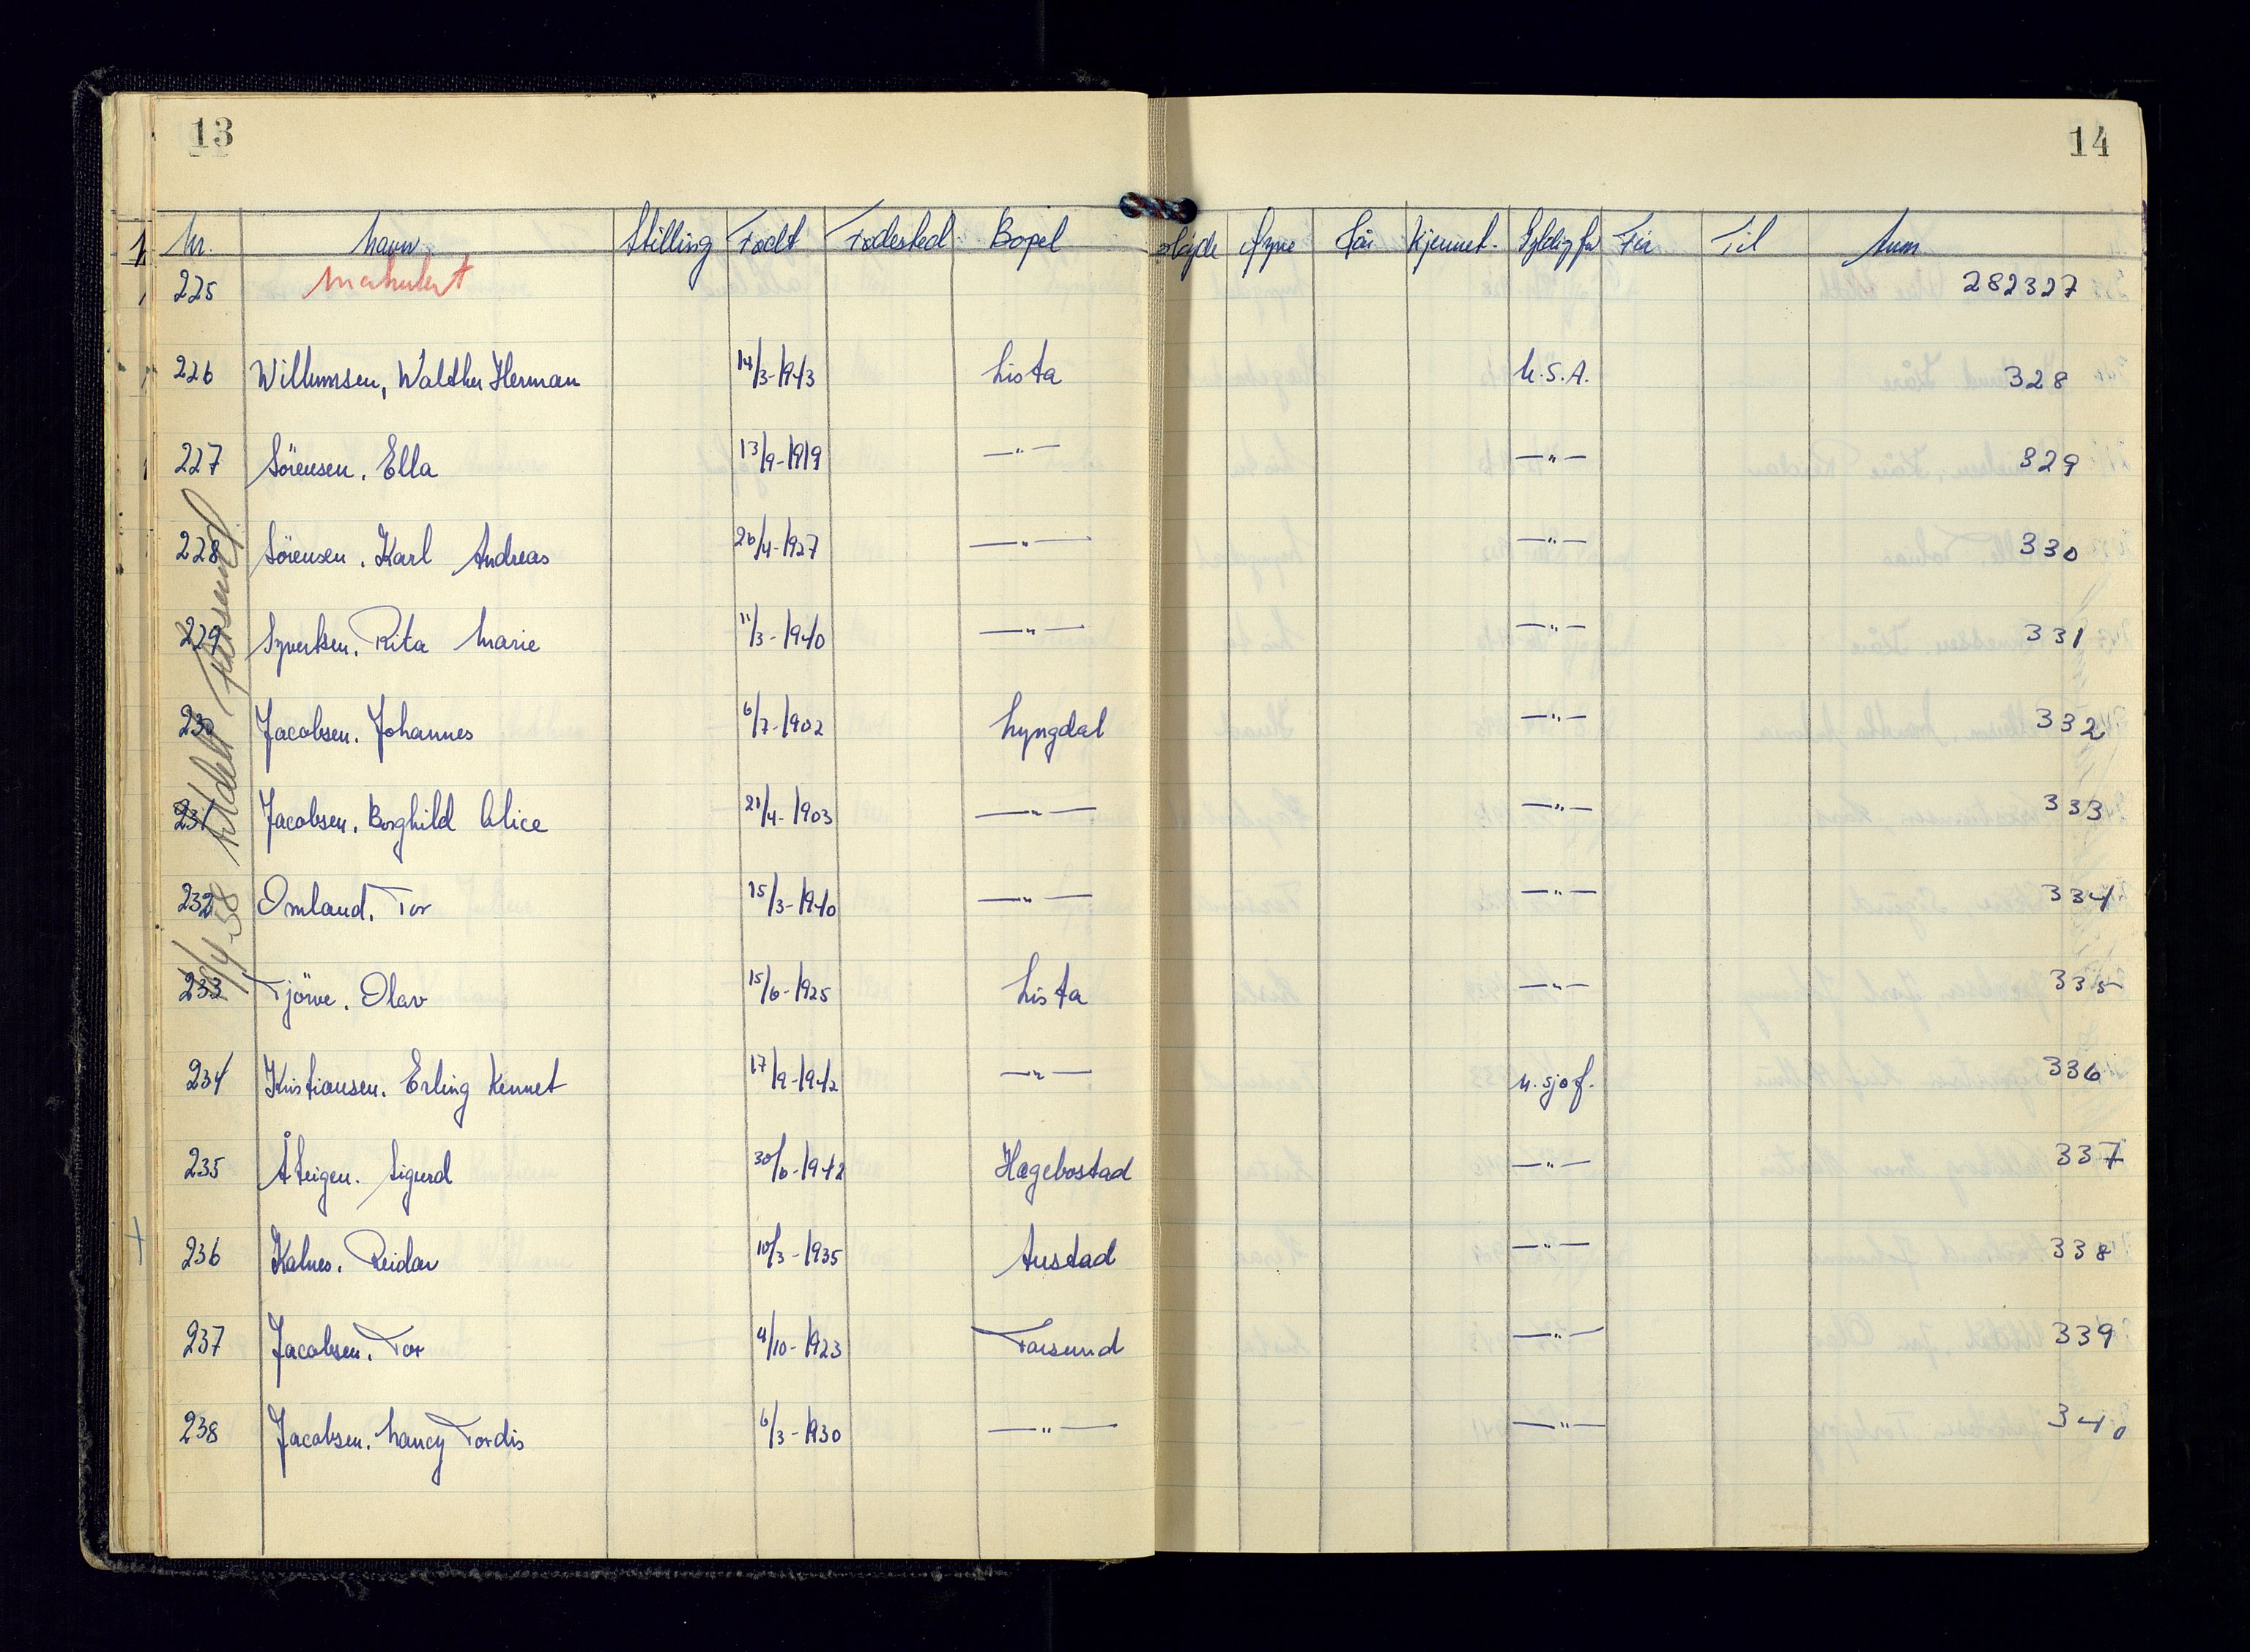 13
14
Nr. Navn Stilling Født Fødested Bopel Høyde Øyne Hår Kjennet. Gyldig for Fra Til Anm.
225 Makulert 282327
226 Willumsen, Walther Herman 14/3-1943 Lista U.S.A. 328
227 Sörensen, Ella 13/9-1919 —"— —"— 329
228 Sörensen, Karl Andreas 26/4-1927 —"— —"— 330
229 Syvertsen, Rita Marie 11/3-1940 —"— —"— 331
230 Jacobsen, Johannes 6/7-1902 Lyngdal —"— 332
231 Jacobsen, Borghild Alice 21/4-1903 —"— —"— 333
232 Omland, Tor 15/3-1940 —"— —"— 334
233 Tjörve, Olav 15/6-1925 Lista —"— 335
234 Kristiansen, Erling Kennet 17/9-1942 —"— u. sjøf. 336
235 Åteigen, Sigurd 30/6-1942 Hægebostad —"— 337
236 Kalnes, Reidar 10/3-1935 Austad —"— 338
237 Jacobsen, Tor 4/10-1923 Farsund —"— 339
238 Jacobsen, Nancy Tordis 6/3-1930 —"— —"— 340
/4-58 Avdelt Farsund